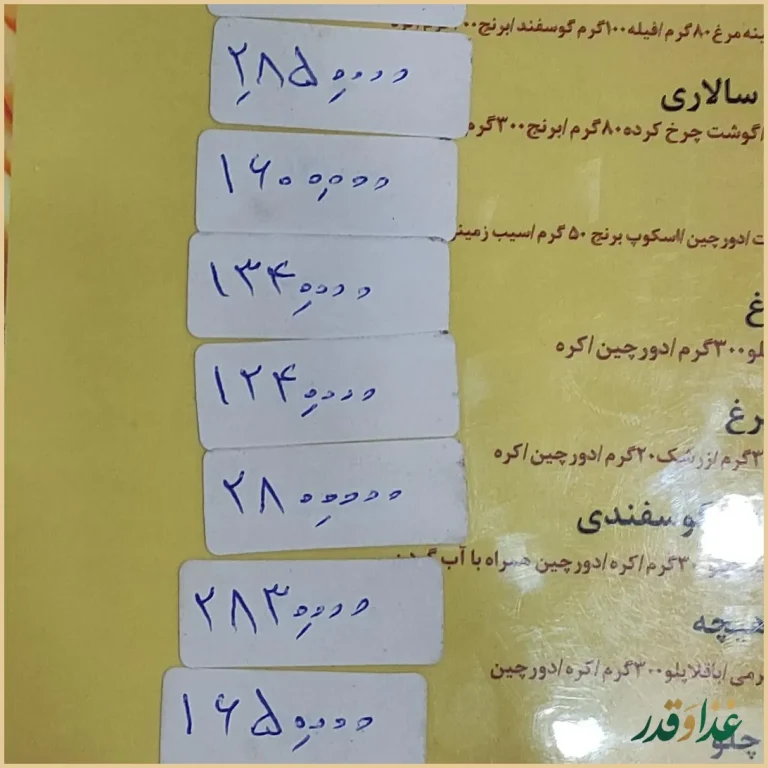 مرغ ۸۰گرم/فیله۱۰۰گرم گوسفند/برنج
۲۸۵۰۰۰۰
سالاری
/گوشت چرخ کرده۸۰گرم/برنج۳۰۰گرم
۱۶۰۰۰۰۰
/دورچین/اسکوپ برنج ۵۰ گرم/سیب زمینی
۱۳۴۰۰۰۰
۳۰۰گرم/دورچین/کره
۱۲۴۰۰۰۰
گرم/زرشک۲۰گرم/دورچین/کره
۲۸۰۰۰۰۰
گوسفندی
گرم/کره/دورچین همراه با آب
۲۸۳۰۰۰۰
/باقلاپلو۳۰۰گرم/کره/دورچین
۱۶۵۰۰۰۰
چلو
غذا و قدر